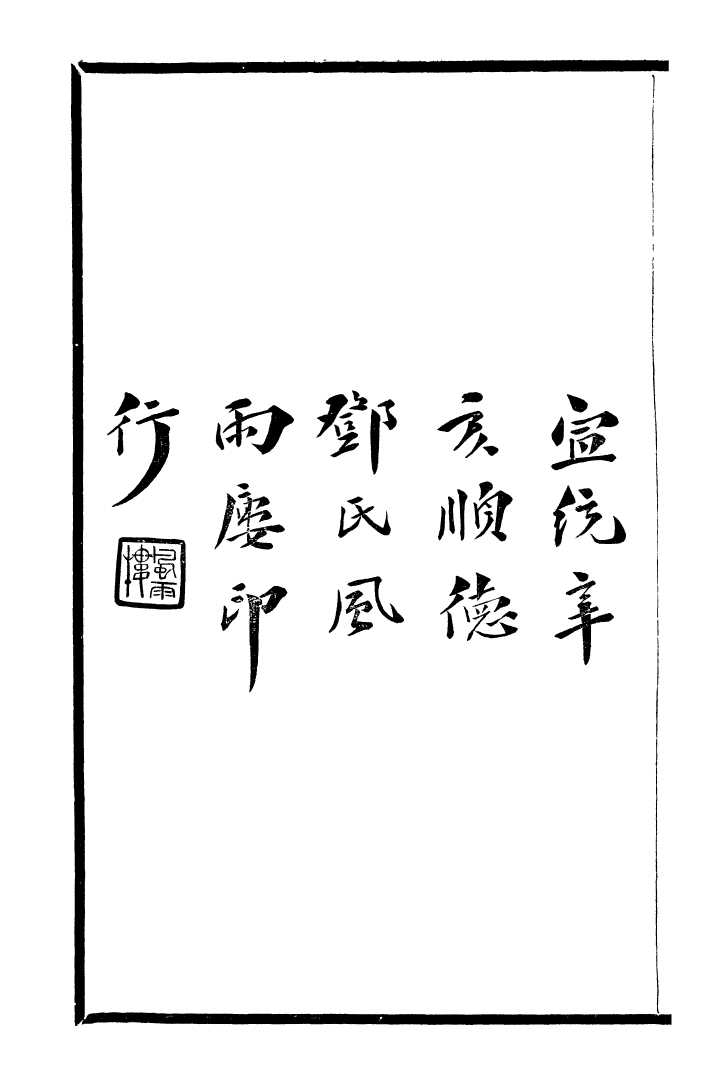 宣統辛
亥順德
鄧氏風
雨廔印
行
風雨樓